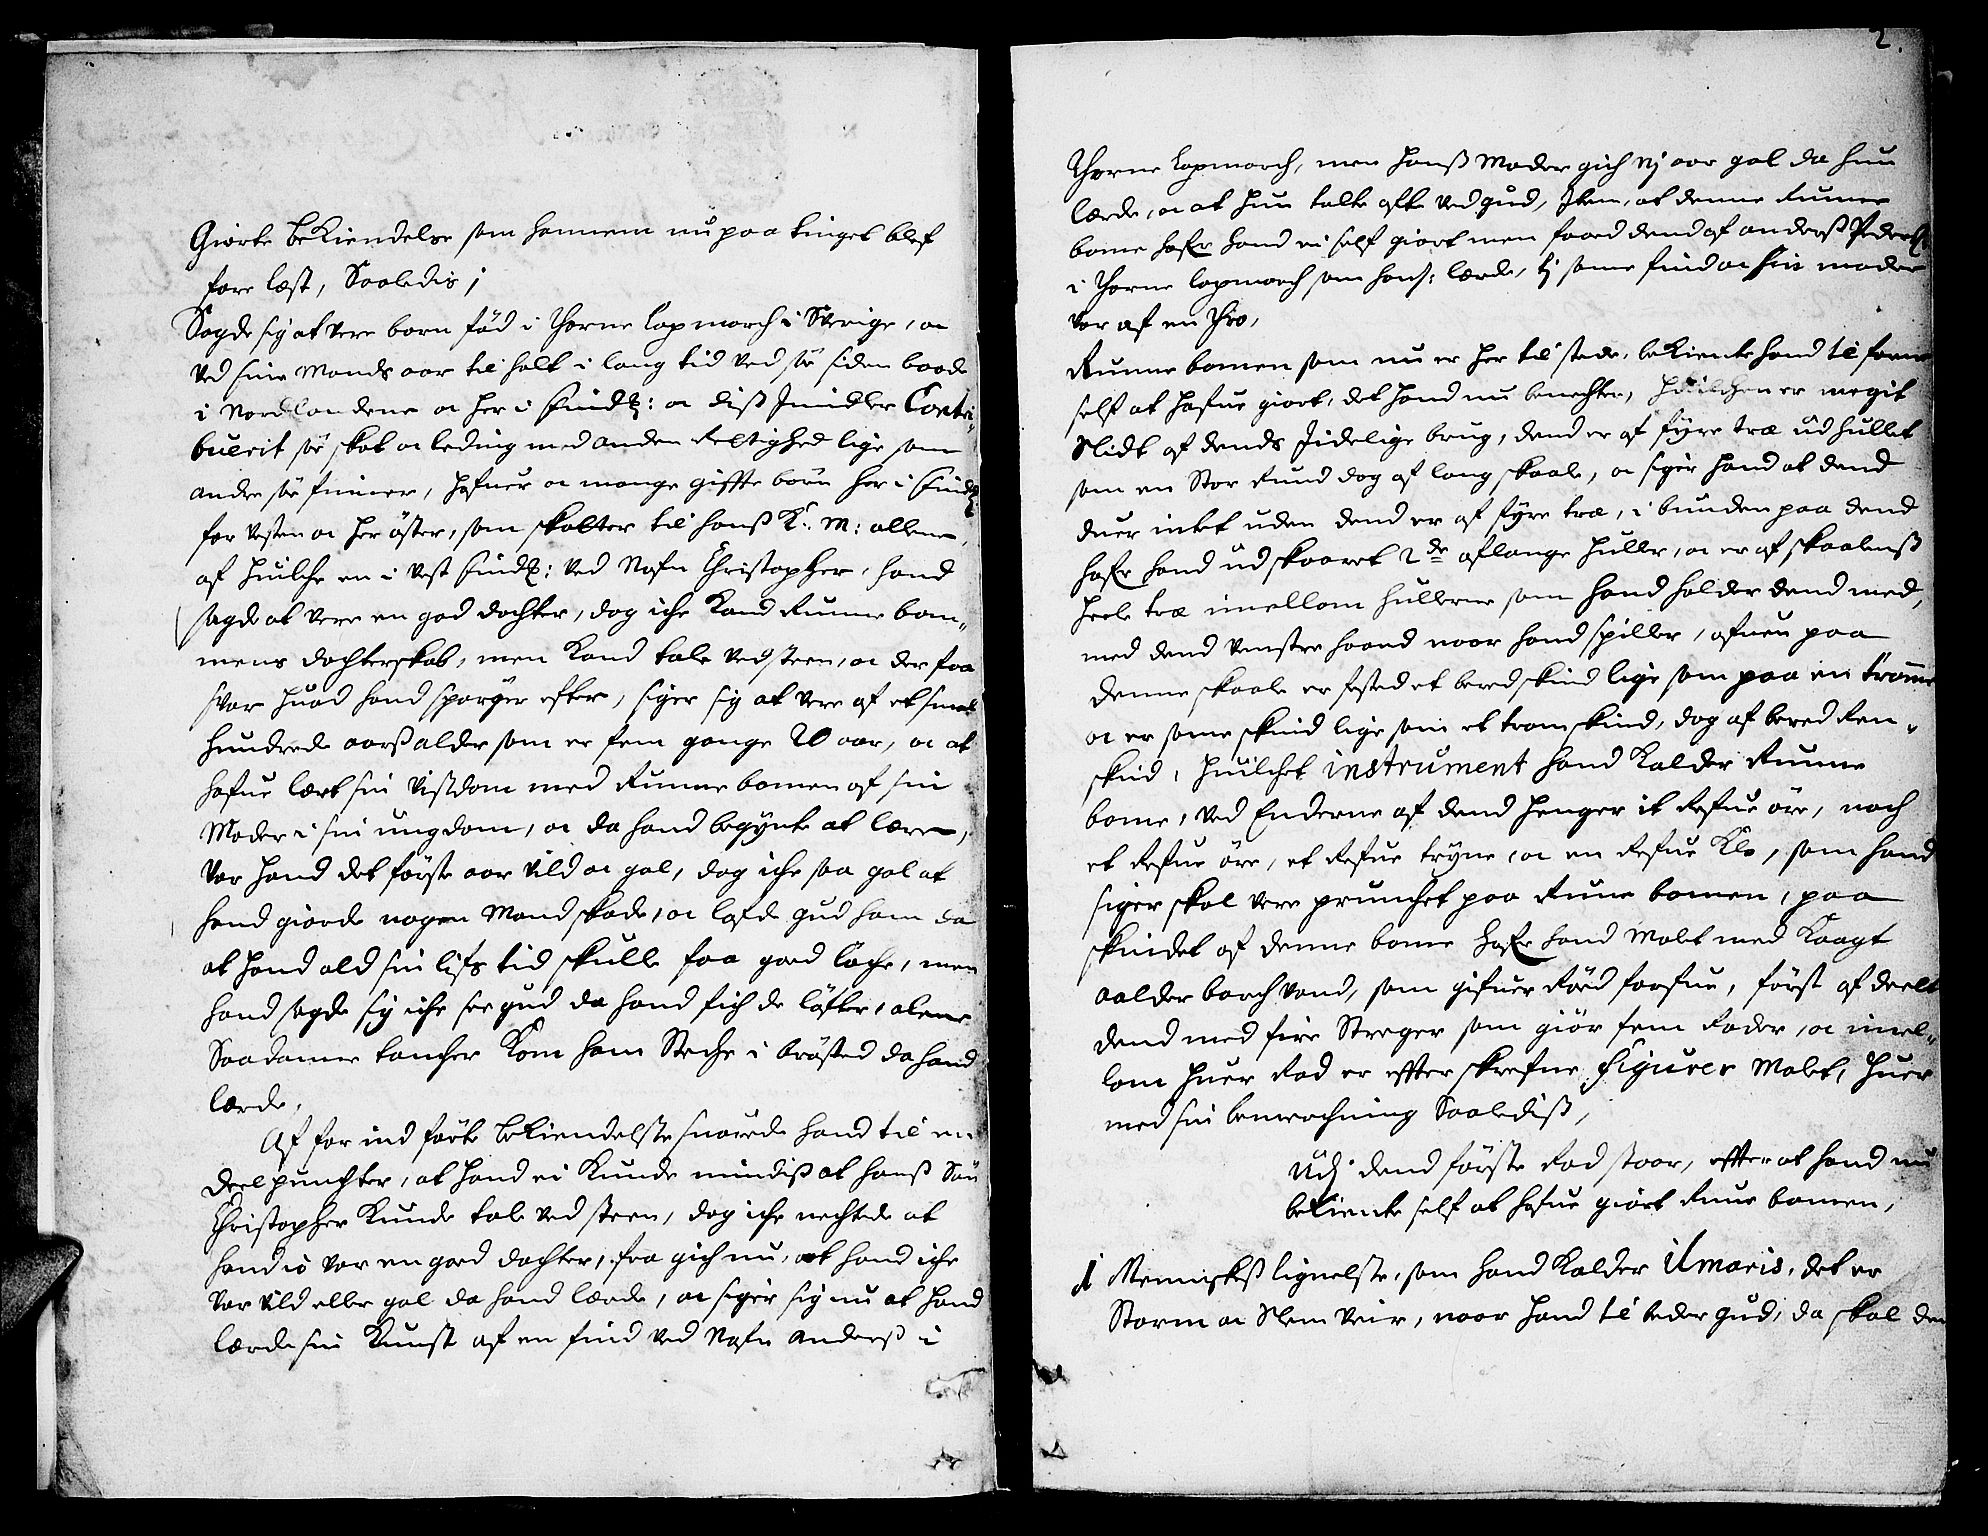 Giorte bekiendelse som hannem nu paa tinget blef
fore læst, Saaledis;
Sagde sig at vere barn fød i Thorne Lapmarch i Sverige, oc
ved sine Mands aar til holt i lang tid ved søe siden baade
i Nordlandene oc her i Findm: oc diss Imidler Contri-
buerit sin skat oc leding med anden Rettighed lige som
andre søe finner, hafuer oc mange giffte børn her i Findm:
for vesten oc her øster, som skatter til hans K: M: allene,
af huilche en i Vest Findm: ved Nafn Christopher, hand
sagde at vere en god dochter, dog iche kand Runne bom-
mens dochterskab, men kand tale ved steen, oc der faa
svar huad hand spørger efter, siger sig at vere af et smal
hundrede aars alder som er fem gange 20 aar, oc at
hafue lært sin visdom med Runne bomen af sin
Moder i sin ungdom, oc da hand begynte at lære,
var hand det første aar vild oc gal, dog iche saa gal at
hand giorde nogen Mand skade, oc lofde gud ham da
at hand ald sin lifs tid skulle faa god løche, men
hand sagde sig iche see gud da hand fich de løfter, alene
Saadanne tancher kom ham Steche i brøsted da hand
lærde,
Af for ind førte bekiendelse suarede hand til en
deel puncter, at hand ei kunde mindis at hans Søn
Christopher kunde tale ved steen, dog iche nechtede at
hand io var en god dochter, fra gich nu, at hand iche
var vild eller gal da hand lærde, oc siger sig nu at hand
lærde sin kunst af en find ved Nafn Anders i
2.
Thorne Lapmarch, men hans Moder gich vj aar gal da hun
lærde, oc at hun talte ofte ved gud, Item, at denne Runne
bome hafr hand ei self giort men faaed dend af Anders Peders
i Thorne Lapmarch som hans: lærde, ty same find oc hin moder
var af en Tro,
Runne bomen som nu er her til stede, bekiente hand til forne
self at hafue giort, det hand nu benechter, huilchen er megit
Slidt af dends Jidelige brug, dend er af fyre træ udhullet
som en Stor rund dog aflang skaale, oc siger hand at dend
duer intet uden dend er af fyre træ, i bunden paa dend
hafr hand udskaaret 2de aflange huller, oc er af skaalens
heele træ imellom hullerne som hand holder dend med,
med dend venstre haand naar hand spiller, ofuen paa
denne skaale er fested et bered skind lige som paa en tromme
oc er same skind lige som et tromskind, dog af bered Ren-
skind, huilchet instrument hand kalder Runne
bome, ved Enderne af dend henger it Refue øre, noch
et Refue øre, et Refue tryne, oc en Refue klo, som hand
siger skal vere prunchet paa Rune bomen, paa
skindet af denne bome hafr hand Malet med kaagt
aalder barch vand, som gifuer Rød farfue, først af deelt
dend med fire Streger som giør fem Rader, oc imel-
lom huer Rad er effter skrefne Figurer Malet, huer
med sin bemerchning Saaledis,
Udj dend første Rad staar, effter at hand nu
bekiente self at hafue giort Rune bomen,
1 Menniskes lignelse, som hand kalder ilmaris, det er
Storm oc Slem veir, naar hand til beder gud, da skal den